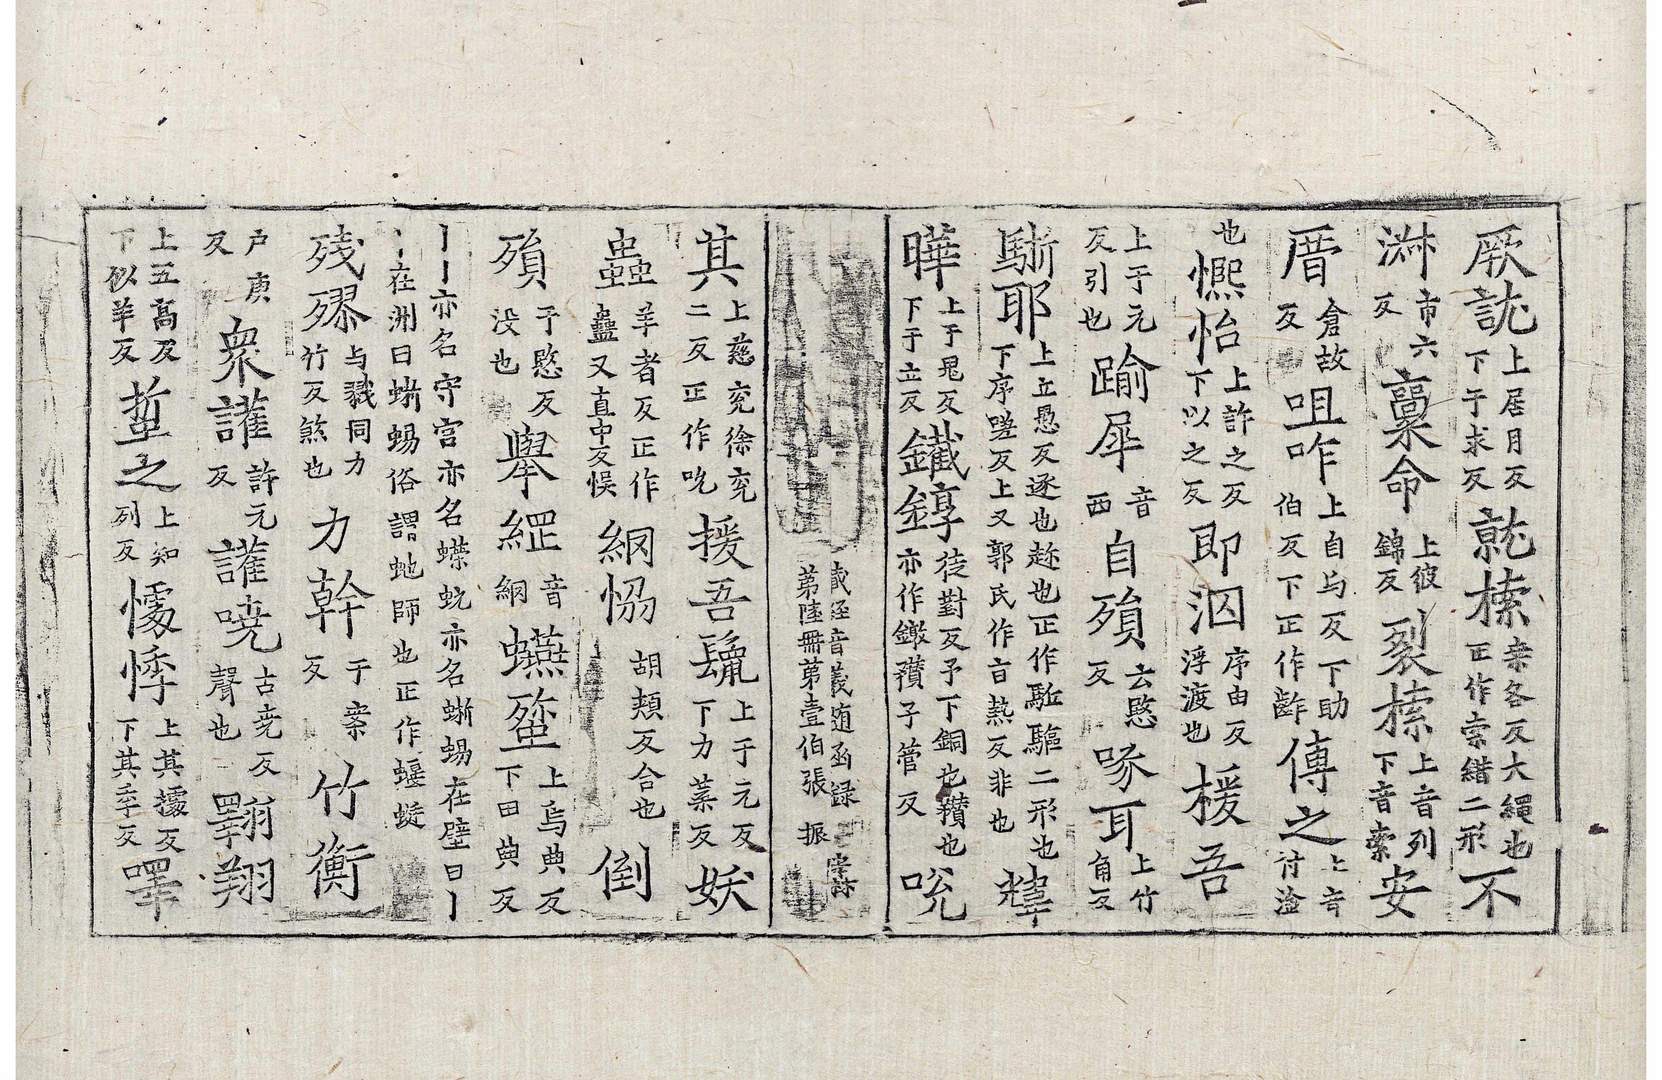 厥訧上居月反下于求反就𣗥桒各反大繩也正作索緕二形不
淋市六反稾命上彼錦反裂𣗥上音列下音索安
厝倉故反咀咋上自与反下助伯反下正作齚傅之上音付溢
也㷩怡上許之反下以之反即泅序由反浮渡也援吾
上于元反引也踰犀音西自殞云愍反啄耳上竹角反
馸耶上丘愚反逐也趂也正作駈驅二形也下序嗟反上又郭氏作音熱反非也韡
曄上于鬼反下于立反鐵錞徒對反予下銅也𥎞也亦作鐓𥎞子管反吮
藏經音義随函録第陸冊第壹伯張 振
其上慈兖徐兖二反正作吮援吾鬣上于元反下力葉反妖
蠱羊者反正作蠱又直中反悮網𢙢胡頬反合也倒
殞予愍反没也舉䋄音網蠮蝘上烏典反下田典反
丨丨亦名守宮亦名蠑蚖亦名蜥蜴在壁曰丨
丨在洲曰蜥蜴俗謂虵師也正作蝘蜓
残殬与戮同力竹反煞也力幹干案反竹衡
户庚反衆讙許元反讙嘵古尭反聲也翺翔
上五髙反下似羊反蜇之上知列反懅悸上其據反下其季反嘷